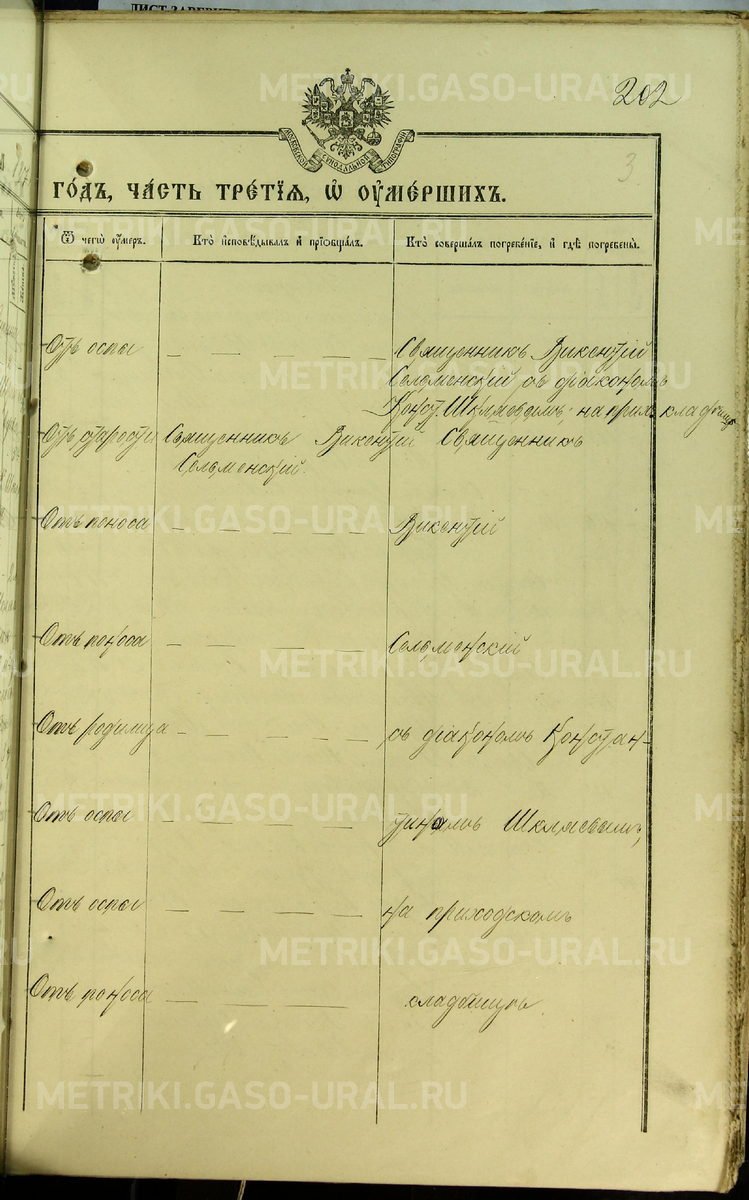 ЛИСТ ЗАВЕРИТЕЛ
202
3
МОСКОВСКОЙ СѴНОДАЛЬНОЙ ТИПОГРАФІИ
ГО́ДЪ, ЧА́СТЬ ТРЕ́ТЇѦ, Ѡ҆ ОУ҆МЕ́РШИХЪ.
Ѿ чегѡ̀ оу҆́меръ. Кто̀ и҆сповѣ́дывалъ и҆ прїѡбща́лъ. Кто̀ соверша́лъ погребе́нїе, и҆ гдѣ̀ погребены̀.
Отъ оспы — — — — — Священникъ Викентій
Селеменскій съ діакономъ
Конст. Шкляевымъ на прих. кладбищѣ
Отъ старости Священникъ Викентій Священникъ
Селеменскій.
Отъ поноса — — — — — Викентій
Отъ поноса — — — — — Селеменскій
Отъ родимца — — — — — съ діакономъ Констан-
Отъ оспы — — — — — тиномъ Шкляевымъ,
Отъ оспы — — — — — на приходскомъ
Отъ поноса — — — — — кладбищѣ.
METRIKI.GASO-URAL.RU